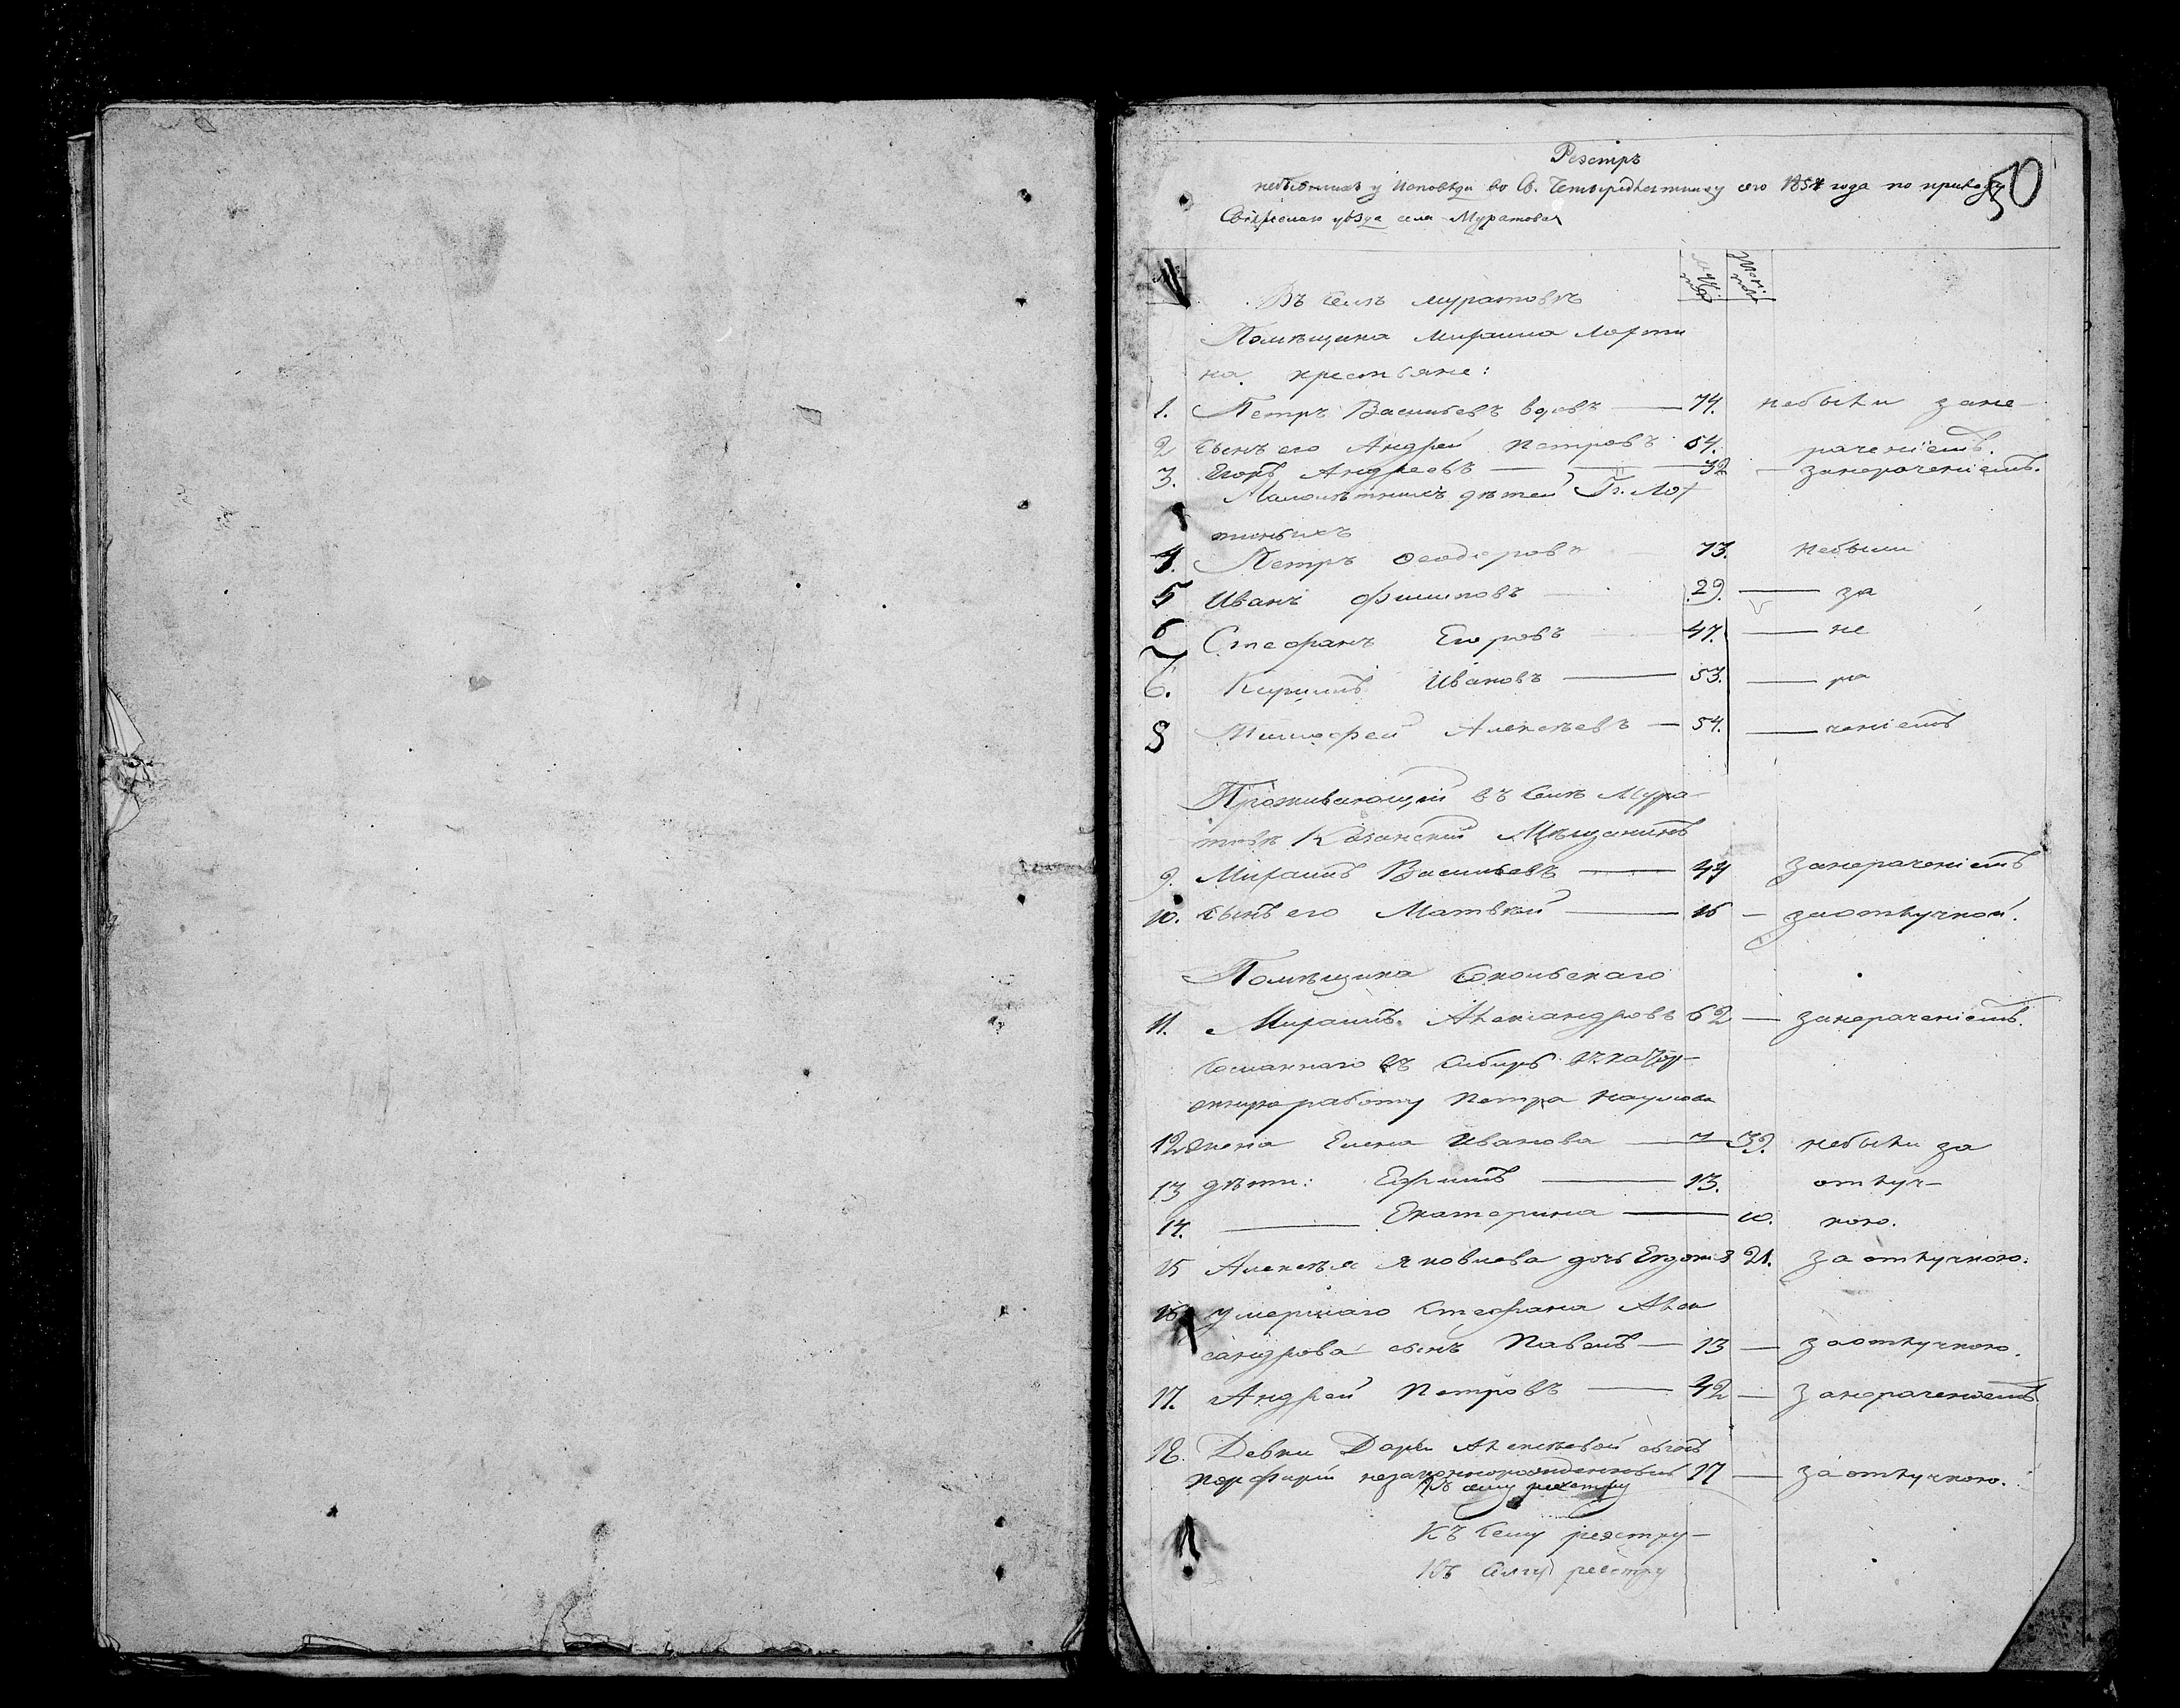 Реэстръ
50
небывшихъ у исповѣди во Св. Четыредесятницу сего 1854 года по приходу
Свіяжскаго уѣзда села Муратова
№
Въ Селѣ Муратовѣ
Помѣщика Михаила Лорти
на крестьяне:
1. Петръ Васильевъ вдовъ — 74. небыли зане-
2 Сынъ его Андрей Петровъ 54. раченіемъ.
3. Егоръ Андреевъ — 32 — занераченіемъ.
Малолѣтнихъ дѣтей Гг.
4. Петръ Феодоровъ 73. небыли
5 Иванъ Филиповъ — 29. — за
6 Стефанъ Егоровъ 47. — не
7. Кирилъ Ивановъ — 53. — ра
8 Тимофей Алексѣевъ — 54. — ченіемъ
Проживающій въ Селѣ Мура-
товѣ Казанскій Мѣщанинъ
9. Михаилъ Васильевъ — 44 занераченіемъ
10. Сынъ его Матвѣй — 16 — заотлучкой.
Помѣщика Сокольскаго
11. Михаилъ Александровъ 62 — занераченіемъ.
Сосланнаго въ Сибирь въ катор-
жную работу Петра Наумова
12 жена Елена Иванова — 39. небыли за
13 дѣти: Ефимъ — 13. отлуч-
14. — Екатерина — 10. кою.
15 Алексѣя Яковлева дочь 21. за отлучкою.
16 умершаго Стефана Алек
сандрова сынъ Павелъ — 13 — заотлучкою.
17. Андрей Петровъ — 42 — занераченіемъ
18. Девки Дарьи Алексѣевой сынъ
Порфирій незаконнорожденный 17 — за отлучкою.
Къ сему реэстру
Къ Сему реэстру —
Къ Сему реестру